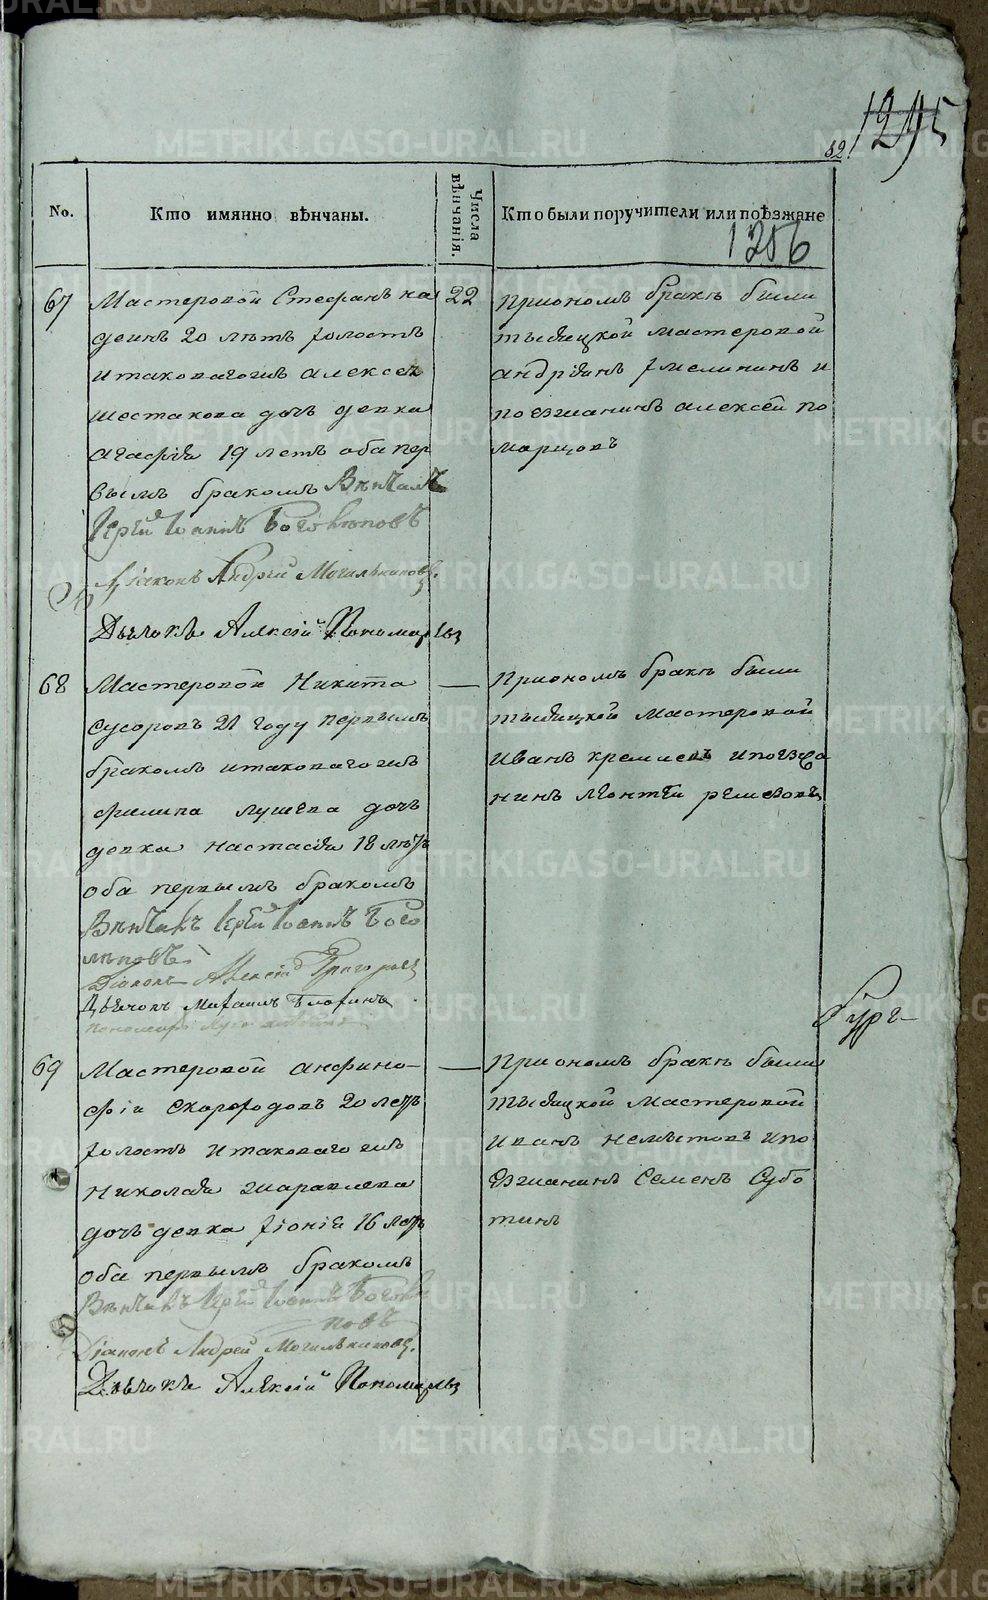 1295
82.
No.
Кто имянно вѣнчаны.
Числа вѣнчанія.
Кто были поручители или поѣзжане
1286
67
Мастеровой Стефанъ на
деинъ 20 лѣтъ холостъ
итаковагожъ алексея
шестакова дочь девка
агафія 19 летъ оба пер
вымъ бракомъ Вѣнчалъ
Іерей Іоаннъ Боголѣповъ
Діаконъ Андрей Могильниковъ.
Дьячокъ Алексій Пономаревъ
22
Приономъ бракѣ были
тысяцкой мастеровой
андріянъ Хмелининъ и
поезжанинъ алексей по
марцовъ
68
Мастеровой Никита
Сусоровъ 21 году первымъ
бракомъ итаковагожъ
филипа лушева дочь
девка настасія 18 лѣтъ
оба первымъ бракомъ
Вѣнчалъ Іерей Іоаннъ Бого
лѣповъ
Діаконъ Алексій
Дьячокъ Михаилъ
пономарь
—
Приономъ бракѣ были
тысяцкой мастеровой
Иванъ кремлевъ ипоезжа
нинъ леонтей ремезовъ
69
Мастеровой анфино-
фій Скороходовъ 20 летъ
холостъ итаковагожъ
Николая жаравлева
дочь девка Хіонія 16 летъ
оба первымъ бракомъ
Вѣнчалъ Іерей Іоаннъ Боголѣ
повъ
Діаконъ Андрей Могильниковъ.
Дьячокъ Алексій Пономаревъ
—
Приономъ бракѣ были
тысяцкой мастеровой
Иванъ немытовъ ипо
езжанинъ Семенъ Субо
тинъ
METRIKI.GASO-URAL.RU